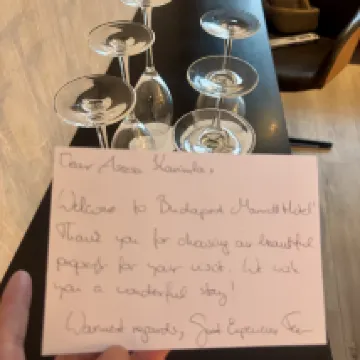 Dear
Welcome to Budapest Marriott Hotel!
Thank you for choosing our beautiful
property for your visit. We wish
you a wonderful stay!
Warmest regards, Guest Experience